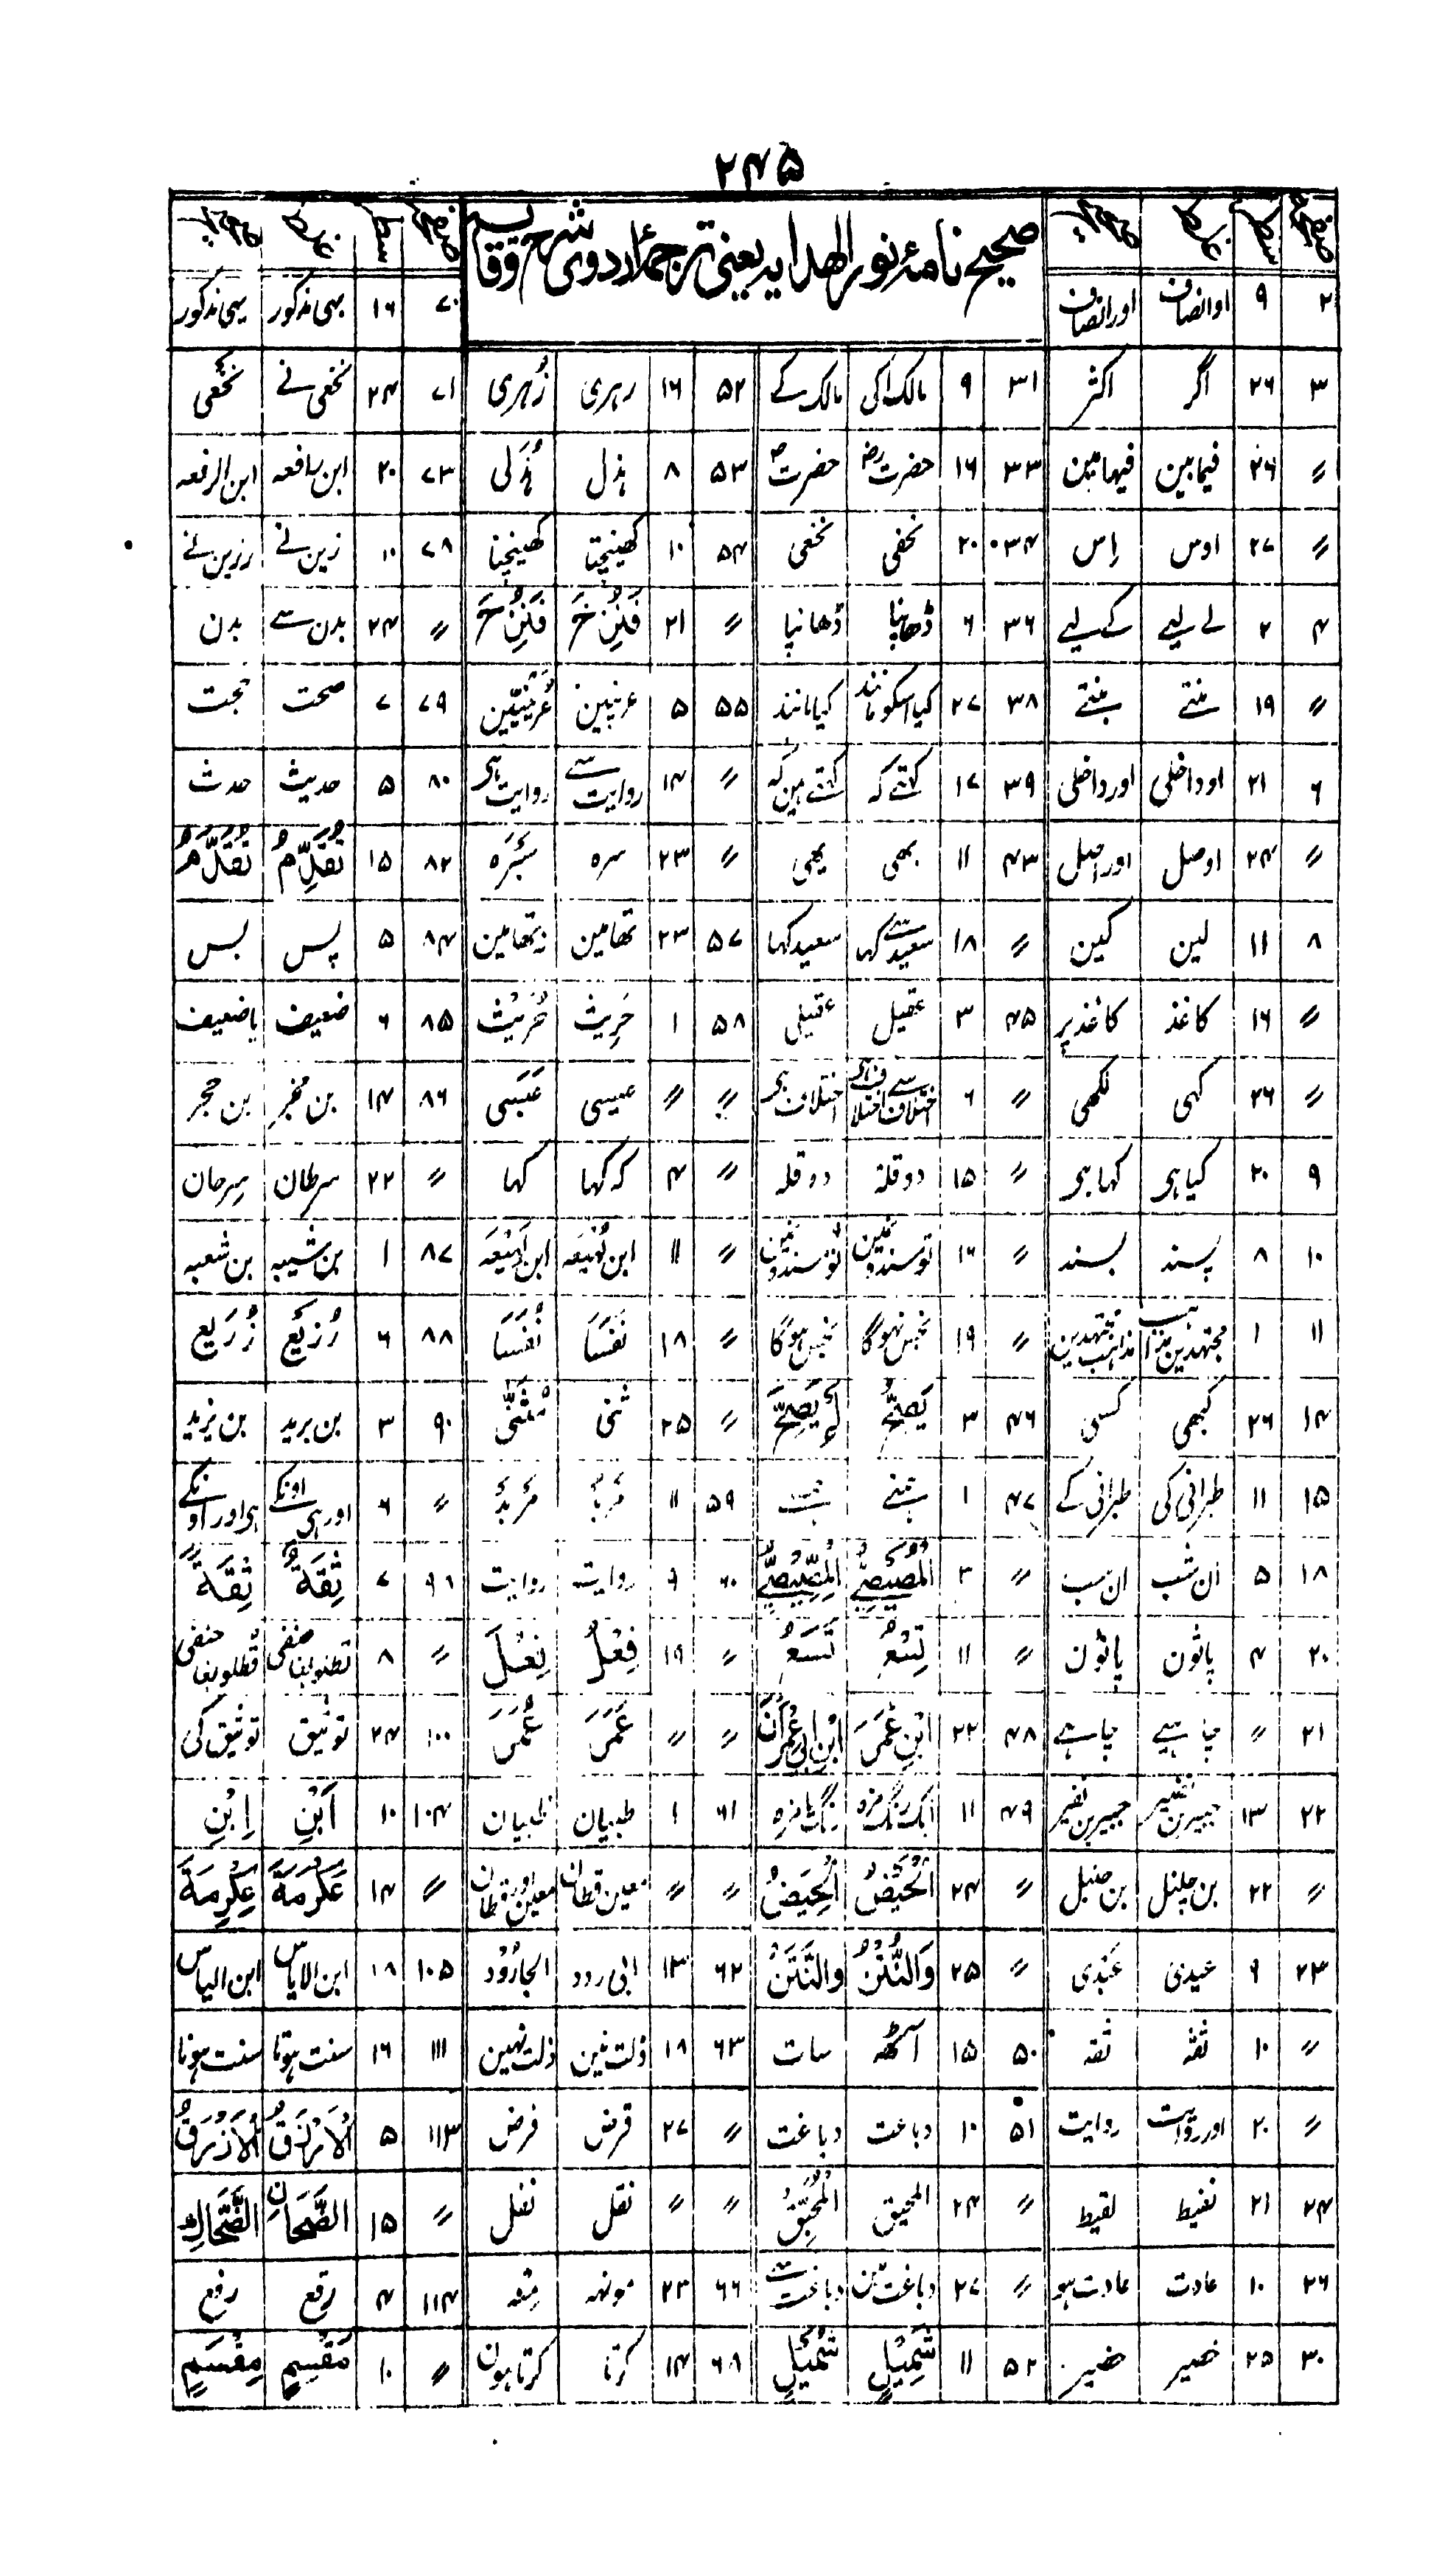 ۲۴۵
صحیح نامۂ نور الهدایہ یعنی ترجمۂ اردوی شرح وقایہ
۲ ۹ اوانصاف اورانصاف ۷۰ ۱۶ بہی مذکور یہی مذکور
۳ ۲۶ اگر اکثر ۳۱ ۹ مالک کی مالک کے ۵۲ ۱۶ رہری زُہری ۷۱ ۲۴ نخفی نے نخعی
〃 ۲۶ فیمابین فیہامین ۳۳ ۱۶ حضرت رض حضرت ص ۵۳ ۸ ہذل ہُذَلی ۷۳ ۲۰ ابن رافعہ ابن الرفعہ
〃 ۲۷ اوس اِس ۳۴ ۲۰ نخفی نخعی ۵۴ ۱۰ کھینچتا کھینچنا ۷۸ ۱۰ زین نے رزین نے
۴ ۲ لے لیے کے لیے ۳۶ ۶ ڈھاپنا ڈھانپا 〃 ۲۱ 〃 ۲۴ بدن سے بدن
〃 ۱۹ ۳۸ ۲۷ کیا اسکو مانند کیا مانند ۵۵ ۵ عرنیین عُرَنِیّین ۷۹ ۷ صحت حجت
۶ ۲۱ اوداخلی اورداخلی ۳۹ ۱۷ کہتے کہ کہتے ہین کہ 〃 ۱۴ روایت سے روایت ہی ۸۰ ۵ حدیث حدث
〃 ۲۴ اوصل اوراصل ۴۳ ۱۱ بھی یہی 〃 ۲۳ سرہ سَبُرَہ ۸۲ ۱۵
۸ ۱۱ لین کین 〃 ۱۸ سعید سے کہا سعید کہا ۵۷ ۲۳ تھامین نہ تھامین ۸۴ ۵ پس بس
〃 ۱۶ کاغذ کاغذپر ۴۵ ۳ عقیل عقیلی ۵۸ ۱ حَرِیث حُرَیْث ۸۵ ۶ ضعیف یاضعیف
〃 ۲۶ کہی لکھی 〃 ۶ اختلاف ہی 〃 〃 عیسی عَبَسَی ۸۶ ۱۴ بن حجر
۹ ۲۰ کیا ہی کہا ہی 〃 ۱۵ دوقلۃ دوقلہ 〃 ۴ کہ کہا کہا 〃 ۲۲ سرطان سِرحان
۱۰ ۸ پسند بسند 〃 ۱۶ 〃 ۱۱ ۸۷ ۱ بن شیبہ بن شعبہ
۱۱ ۱ مجتہدین مذاہب مذاہب مجتہدین 〃 ۱۹ نجس نہوگا نجس ہوگا 〃 ۱۸ نَفَسَا نُفَسَا ۸۸ ۶ رُزیع زُرَیع
۱۴ ۲۶ کبھی کسی ۴۶ ۳ یَصِحُّ لَمْ یَصِحَّ 〃 ۲۵ ثنی مُثَنّٰی ۹۰ ۳ بن برید بن یزید
۱۵ ۱۱ طبرانی کی طبرانی کے ۴۷ ۱ ۵۹ ۱۱ 〃 ۶ اور ہی اونکے ہی اور اونکے
۱۸ ۵ ان شب ان سب 〃 ۳ المصیصی المِصِّیْصِیّ ۶۰ ۹ روایت روایت ۹۶ ۷ ثِقَۃٌ ثِقَۃً
۲۰ ۴ پاثون پاٹون 〃 ۱۱ تِسْعُ تَسَعُ 〃 ۱۹ فِعْلُ فِعْلَ 〃 ۸ حنفی قطلوبغا
۲۱ 〃 چاہیے چاہے ۴۸ ۲۲ ابْنِ عُمَرَ ابْنِ ابِی عِمْرَانَ 〃 〃 عَمَرَ عُمَرَ ۱۰۰ ۲۴ توثیق توثیق کی
۲۲ ۱۳ جبیربن نفیر ۴۹ ۱۱ رنگ یا مزہ ۶۱ ۱ طبیان ظبیان ۱۰۴ ۱۰ اَبْنِ اِبْنِ
〃 ۲۲ بن حنبل 〃 ۲۴ الحَیْضُ الحِیَضُ 〃 〃 معین قطان معین اور قطان 〃 ۱۴ عَکْرَمَۃَ عِکْرِمَۃَ
۲۳ ۹ عیدی عَبْدی 〃 ۲۵ وَالنَّتْنُ والنَّتَنُ ۶۲ ۱۳ الجارُوْد ۱۰۵ ۱۸ ابن الایاس ابن الیاس
〃 ۱۰ ثقہ ۵۰ ۱۵ آٹھ سات ۶۳ ۱۸ ذلت مین ذلت نہین ۱۱۱ ۱۶ سنت ہوتا سنت ہونا
〃 ۲۰ اور روایت روایت ۵۱ ۱۰ دباعت دباغت 〃 ۲۷ قرض فرض ۱۱۳ ۵ الاَزْرَقُ
۲۴ ۲۱ نغیط لقیط 〃 ۲۴ المحیق المُحَبَّق 〃 〃 نقل نفل 〃 ۱۵ الضَّحَانِ الضَّحَّاكِ
۲۶ ۱۰ عادت عادت ہو 〃 ۲۷ دباغت مین دباغت سے ۶۶ ۲۳ مونہہ ۱۱۴ ۴ رقع رفع
۳۰ ۲۵ خضیر حضیر ۵۲ ۱۱ شَمِیْلٍ شُمَیْلٍ ۶۸ ۱۴ کرتا کرتا ہون 〃 ۱۰ مَقْسِمٍ مِقْسَمٍ